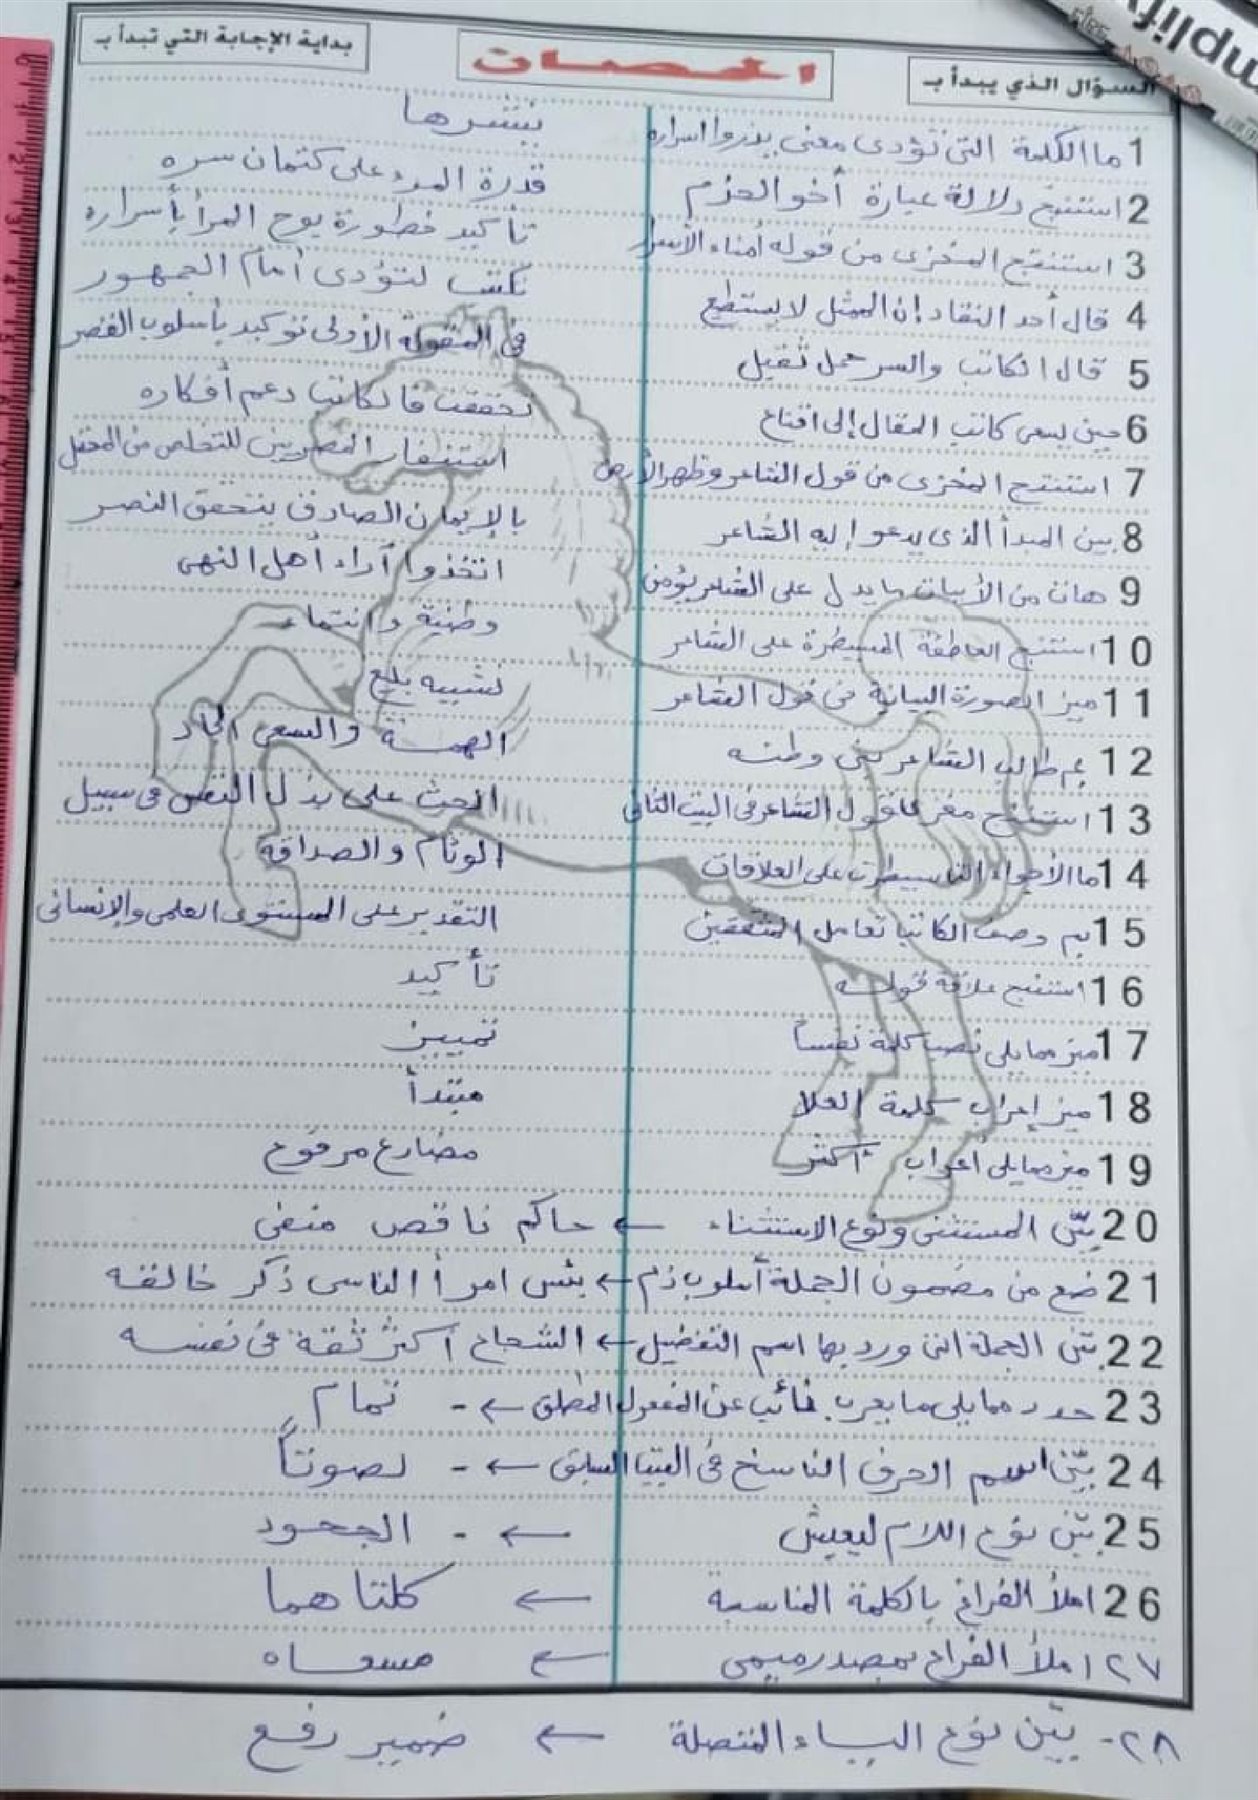 السؤال الذي يبدأ بـ
الحصان
بداية الإجابة التي تبدأ بـ
1 ما الكلمة التى تؤدى معنى يذروا اسراره
ينشرها
2 استنتج دلالة عبارة أخو الحزم
قدرة المرء على كتمان سره
3 استنتج المغزى من قوله أمناء الأسرار
تأكيد خطورة بوح المرأ بأسراره
4 قال أحد النقاد إن الممثل لا يستطع
تكتب لتؤدى أمام الجمهور
5 قال الكاتب والسر حمل ثقيل
فى المقولة الأولى توكيد بأسلوب القصر
6 حين يسعى كاتب المقال إلى اقناع
تحققت فالكاتب دعم أفكاره
7 استنتج المغزى من قول الشاعر وظهر الأرض
استنفار المصريين للتخلص من المحتل
8 بين المبدأ الذى يدعو إليه الشاعر
بالإيمان الصادق يتحقق النصر
9 هات من الأبيات ما يدل على الشاعر يؤمن
اتخذوا آراء أهل النهى
10 استنتج العاطفة المسيطرة على الشاعر
وطنية وانتماء
11 ميز الصورة البيانية من قول الشاعر
تشبيه بليغ
12 بم طالب الشاعر بنى وطنه
الهمة والسعى الجاد
13 استنتج مغزى قول الشاعر فى البيت الثانى
الحث على بذل النفس فى سبيل
14 ما الأجواء التى سيطرت على العلاقات
الوئام والصداقة
15 بم وصف الكاتب تعامل المثقفين
التقدير على المستوى العلمى والإنسانى
16 استنتج علاقة قوله
تأكيد
17 ميز مما يلى نصب كلمة نفساً
تمييز
18 ميز إعراب كلمة العلا
مبتدأ
19 ميز مما يلى أعراب أكثر
مضارع مرفوع
20 بيّن المستثنى ونوع الاستثناء ← حاكم ناقص منفى
21 ضع من مضمون الجملة أسلوب ذم ← بئس امرأ الناسى ذكر خالقه
22 بيّن الجملة التى ورد بها اسم التفضيل ← الشجاع أكثر ثقة فى نفسه
23 حدد مما يلى ما يعرب نائب عن المفعول المطلق ← - تمام
24 بيّن اسم الحرف الناسخ فى البيت السابق ← - لصوتاً
25 بيّن نوع اللام ليعيش ← - الجحود
26 املأ الفراغ بالكلمة المناسبة ← كلتاهما
٢٧ املأ الفراغ بمصدر ميمى ← مسعاه
٢٨- بيّن نوع الياء المتصلة ← ضمير رفع